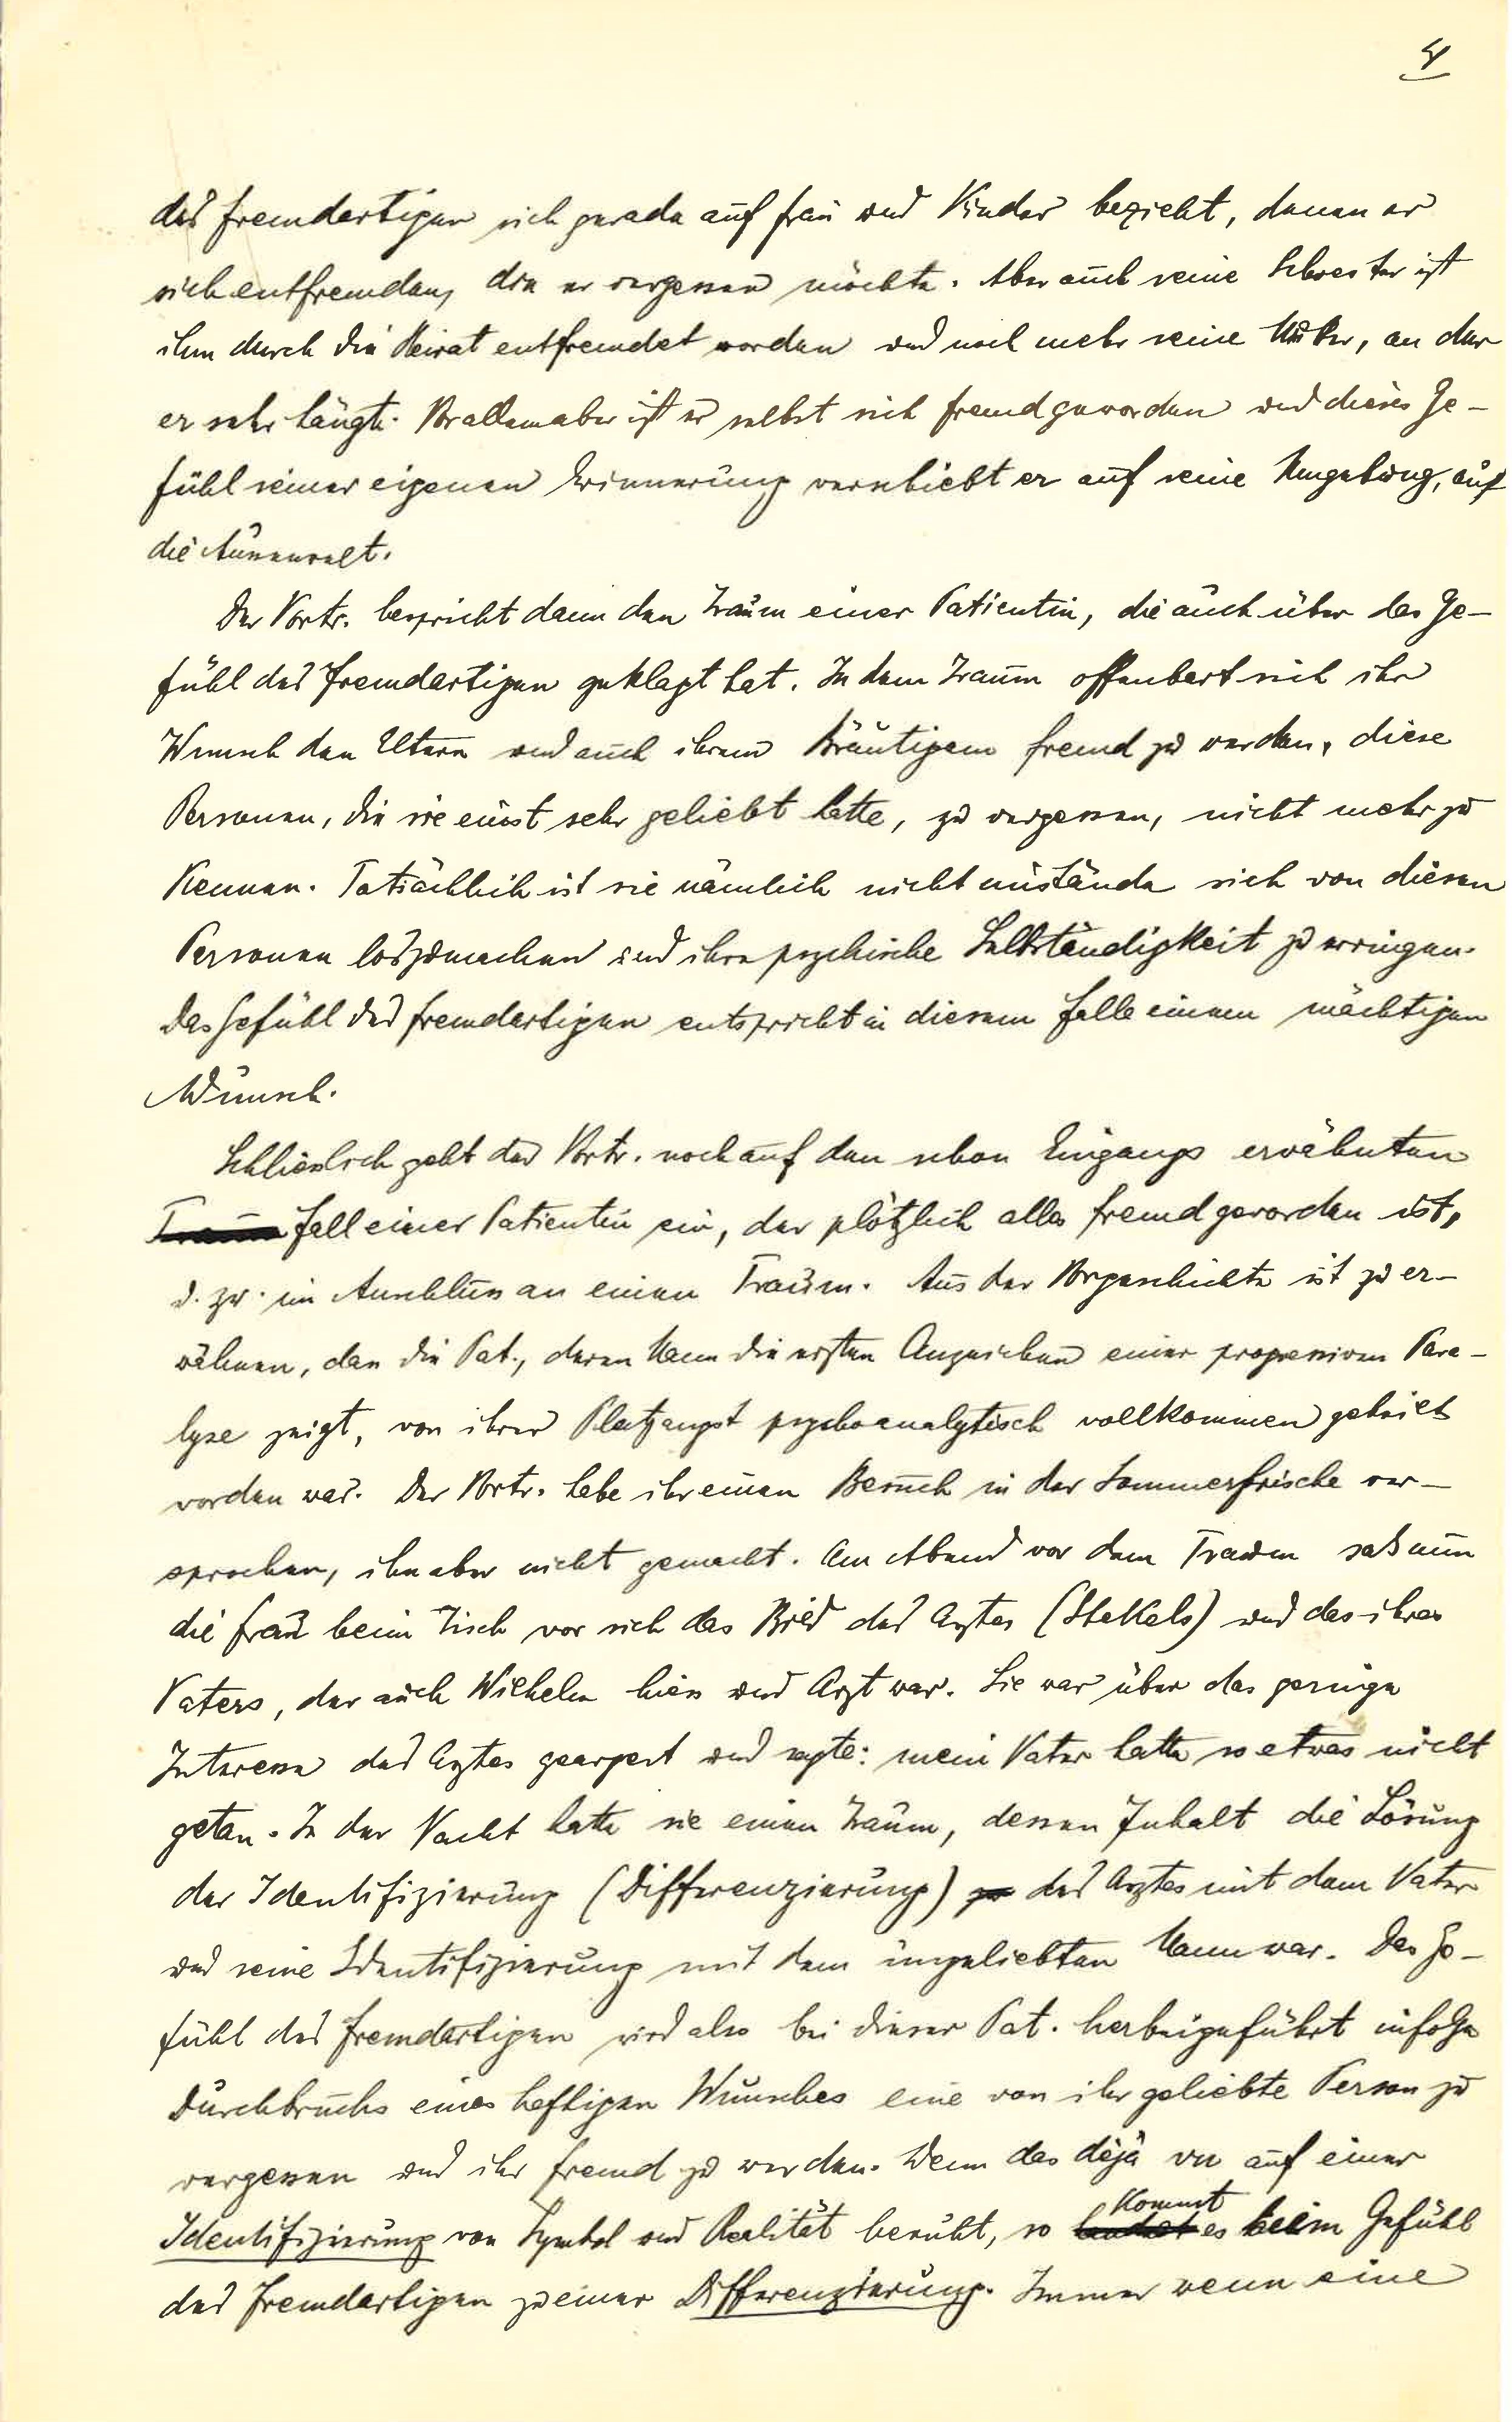 4
des fremdartigen sich gerade auf Frau und Kinder bezieht, denen er
sich entfremden, die er vergessen möchte. Aber auch seine Schwester ist
ihm durch die Heirat entfremdet worden und noch mehr seine Mutter, an der
er sehr hängt. Vor allem aber ist er selbst sich fremd geworden und dieses Ge-
fühl seiner eigenen Erinnerung verschiebt er auf seine Umgebung, auf
die Aussenwelt.
Der Vortr. bespricht dann den Traum einer Patientin, die auch über das Ge-
fühl des fremdartigen geklagt hat. In dem Traum offenbart sich ihr
Wunsch den Eltern und auch ihrem Bräutigam fremd zu werden, diese
Personen, die sie einst sehr geliebt hatte, zu vergessen, nicht mehr zu
kennen. Tatsächlich ist sie nämlich nicht imstande sich von diesen
Personen loszumachen und ihre psychische Selbständigkeit zu erringen.
Das Gefühl des fremdartigen entspricht in diesem Falle einem mächtigen
Wunsch.
Schliesslich geht der Vortr. noch auf den schon Eingangs erwähnten
Traum Fall einer Patientin ein, der plötzlich alles fremd geworden ist,
u. zw. im Anschluss an einen Traum. Aus der Vorgeschichte ist zu er-
wähnen, dass die Pat., deren Mann die ersten Anzeichen einer progressiven Para-
lyse zeigt, von ihrer Platzangst psychoanalytisch vollkommen geheilt
worden war. Der Vortr. habe ihr einen Besuch in der Sommerfrische ver-
sprochen, ihn aber nicht gemacht. Am Abend vor dem Traum sass nun
die Frau beim Tisch vor sich das Bild des Arztes (Stekels) und das ihres
Vaters, der auch Wilhelm hiess und Arzt war. Sie war über das geringe
Interesse des Arztes geärgert und sagte: mein Vater hätte so etwas nicht
getan. In der Nacht hatte sie einen Traum, dessen Inhalt die Lösung
der Identifizierung (Differenzierung) des Arztes mit dem Vater
und seine Identifizierung mit dem ungeliebten Mann war. Das Ge-
fühl des fremdartigen wird also bei dieser Pat. herbeigeführt infolge
Durchbruchs eines heftigen Wunsches eine von ihr geliebte Person zu
vergessen und ihr fremd zu werden. Wenn das déjà vu auf einer
Identifizierung von Symbol und Realität beruht, so kommt es beim Gefühl
des fremdartigen zu einer Differenzierung. Immer wenn eine